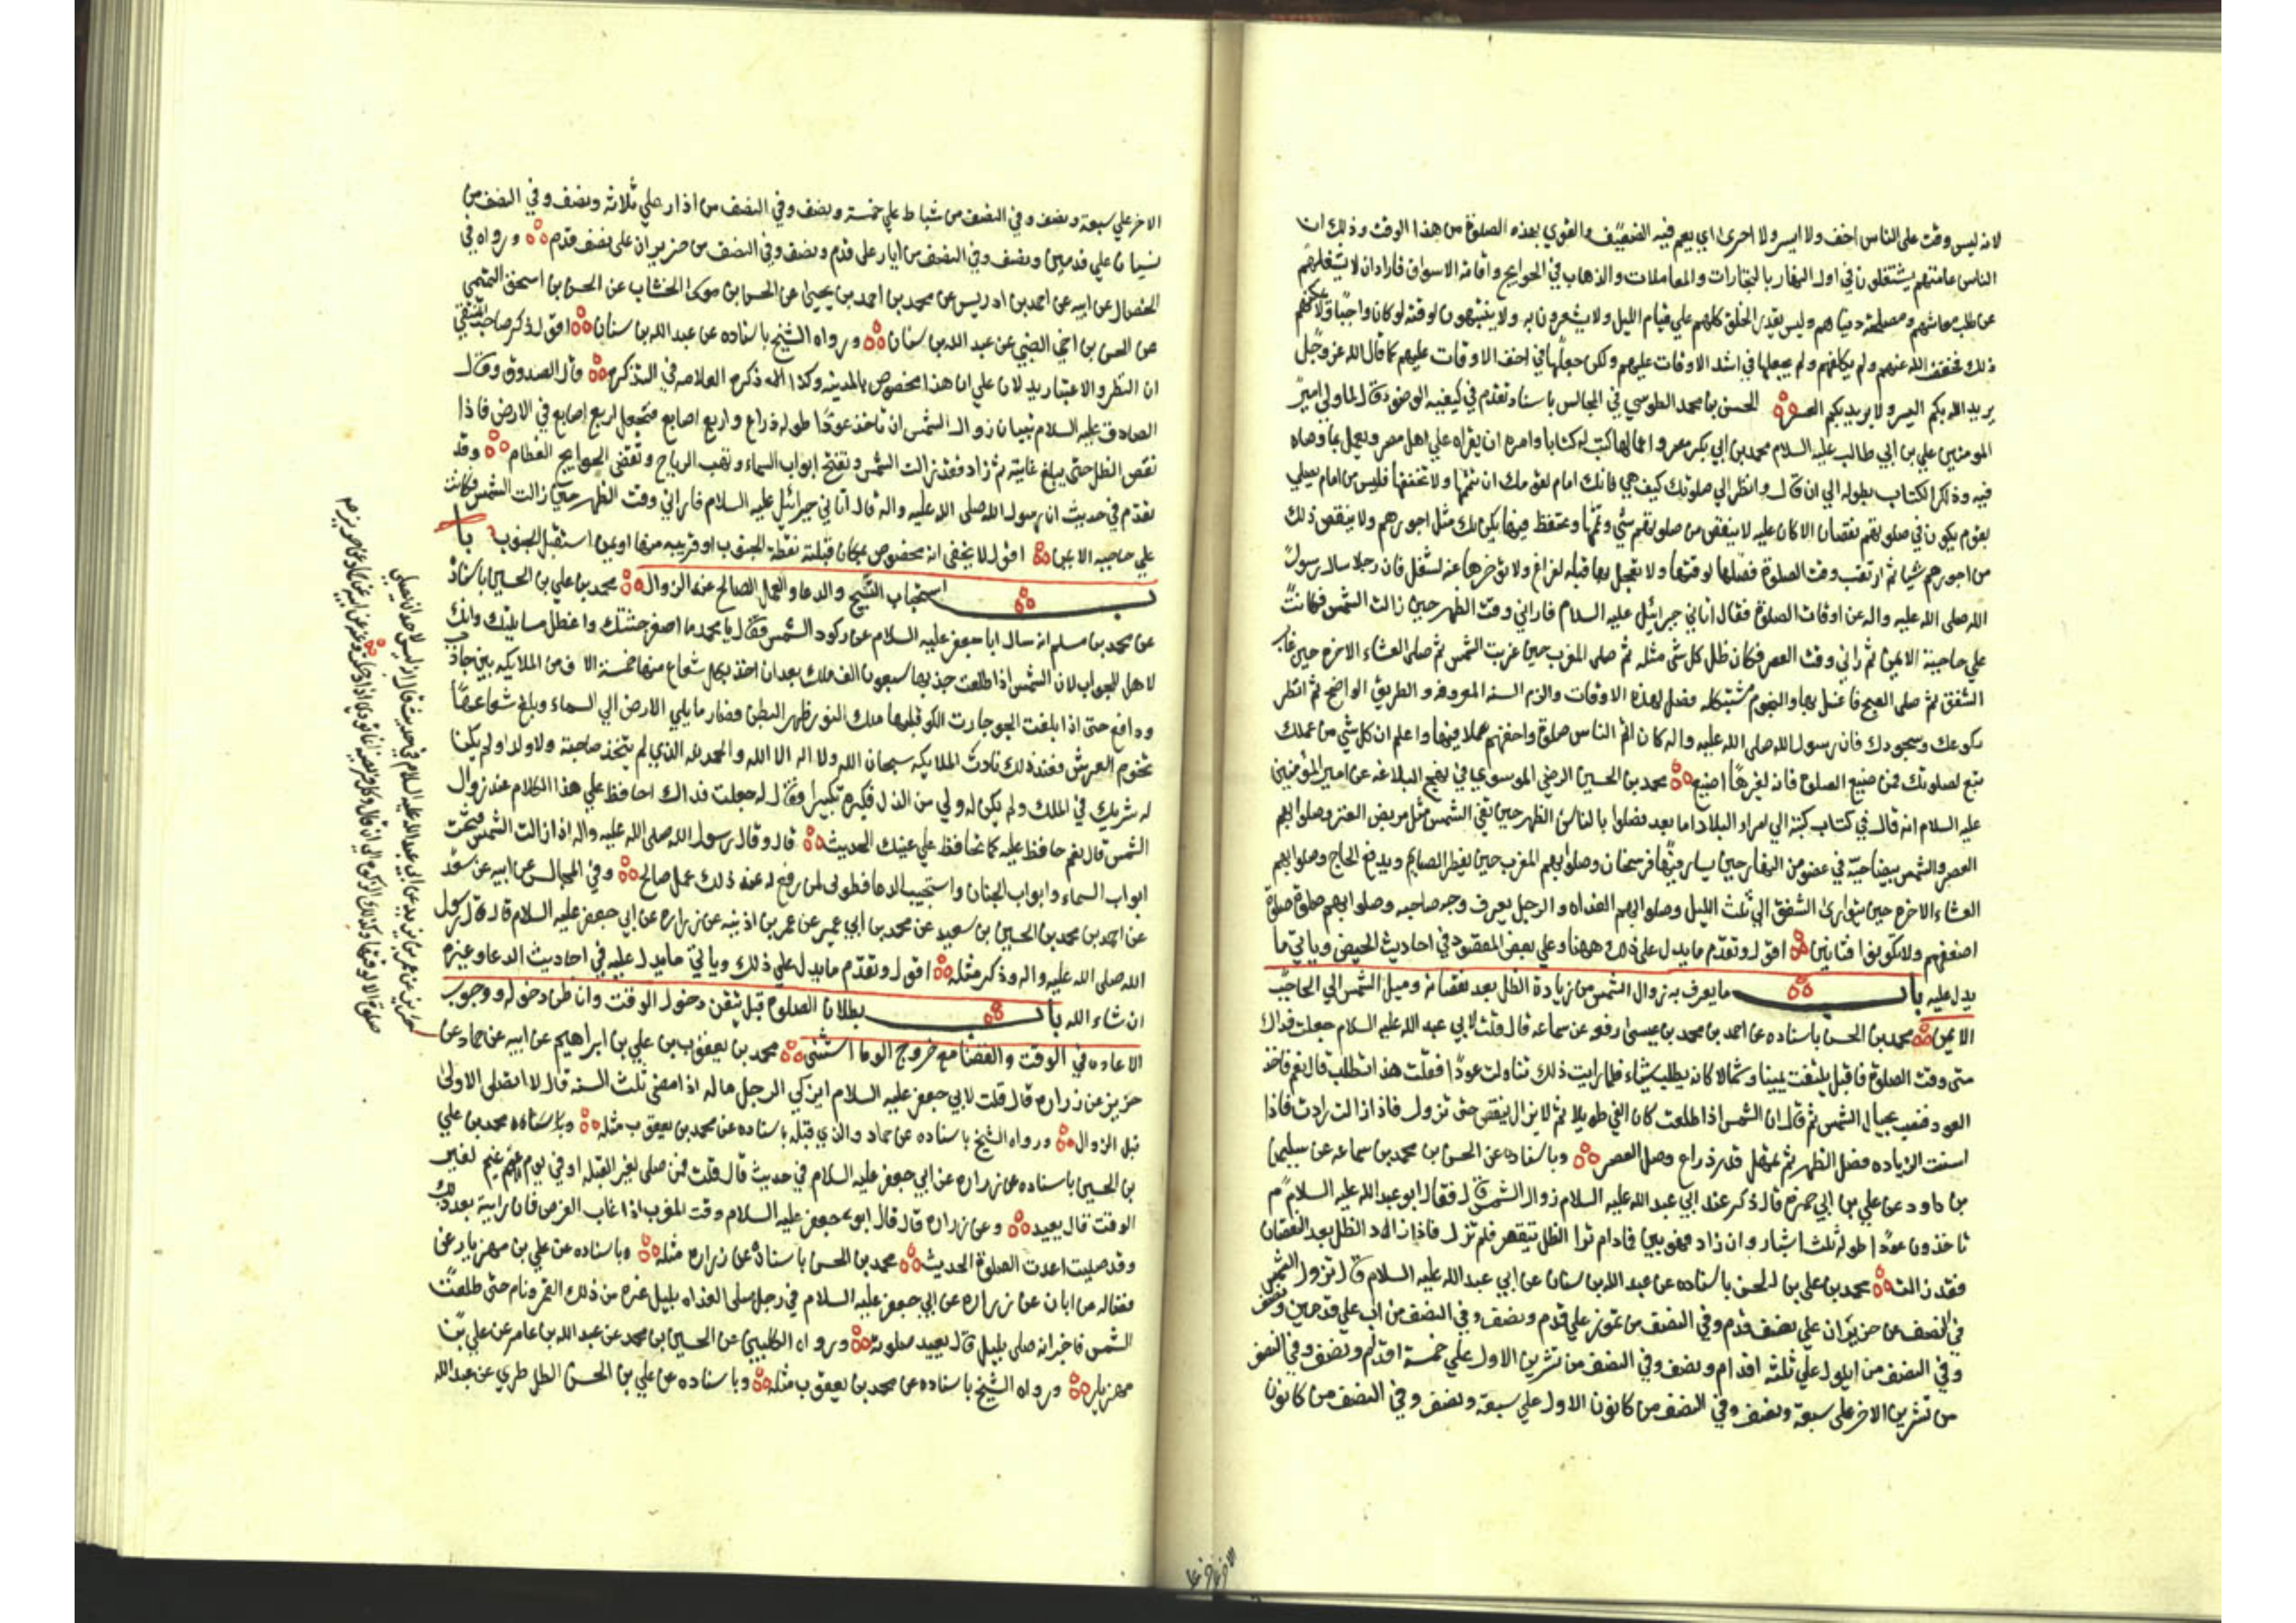 لانه ليس وقت على الناس اخف ولا ايسر ولا احرى اي يعم فيه الضعيف والقوي بهذه الصلوة من هذا الوقت وذلك ان
الناس عامتهم يشتغلون في اول النهار بالتجارات والمعاملات والذهاب في الحوايج واقامة الاسواق فاراد ان لا يشغلهم
عن طلب معاشهم ومصلحة دنياهم وليس يقدر الخلق كلهم علي قيام الليل ولا يشعرون به ولا ينتبهون لوقته لو كان واجبا ولا يمكنهم
ذلك فخفف الله عنهم ولم يكلفهم ولم يجعلها في اشد الاوقات عليهم ولكن جعلها في اخف الاوقات عليهم كما قال الله عز وجل
يريد الله بكم اليسر ولا يريد بكم العسر الحسن بن محمد الطوسي في المجالس باسناد تقدم في كيفية الوضوء قال لما ولي امير
المومنين علي بن ابي طالب عليه السلام محمد بن ابي بكر مصر واعمالها كتب له كتابا وامره ان يقراه علي اهل مصر ويعمل بما وصاه
فيه وذكر الكتاب بطوله الي ان قال وانظر الي صلوتك كيف هي فانك امام لقومك ان تتمها ولا تخففها فليس من امام يصلي
بقوم يكون في صلوتهم نقصان الا كان عليه لا ينقص من صلوتهم شي وتمها وتحفظ فيها يكن لك مثل اجورهم ولا ينقص ذلك
من اجورهم شيا ثم ارتقب وقت الصلوة فصلها لوقتها ولا تعجل بها قبله لفراغ ولا تؤخرها عنه لشغل فان رجلا سال رسول
الله صلى الله عليه واله عن اوقات الصلوة فقال اتاني جبرائيل عليه السلام فاراني وقت الظهر حين زالت الشمس فكانت
علي حاجبه الايمن ثم اراني وقت العصر فكان ظل كل شي مثله ثم صلى المغرب حين غربت الشمس ثم صلى العشاء الاخرة حين غاب
الشفق ثم صلى الصبح فاغلس بها والنجوم مشتبكة فصل لهذه الاوقات والزم السنة المعروفة والطريق الواضح ثم انظر
ركوعك وسجودك فان رسول الله صلى الله عليه واله كان اتم الناس صلوة واخفهم عملا فيها واعلم ان كل شي من عملك
تبع لصلوتك فمن ضيع الصلوة فانه لغيرها اضيع محمد بن الحسين الرضي الموسوي في نهج البلاغه عن امير المؤمنين
عليه السلام انه قال في كتاب كتبه الي امراء البلاد اما بعد فصلوا بالناس الظهر حين تفي الشمس مثل مربض العنز وصلوا بهم
العصر والشمس بيضا حية في عضو من النهار حين يسار فيها فرسخان وصلوا بهم المغرب حين يفطر الصايم ويدفع الحاج وصلوا بهم
العشاء الاخرة حين يتوارى الشفق الي ثلث الليل وصلوا بهم الغداه والرجل يعرف وجه صاحبه وصلوا بهم صلوة
اضعفهم ولا تكونوا فتانين اقول وتقدم ما يدل على ذلك ههنا وعلي بعض المقصود في احاديث الحيض وياتي ما
يدل عليه باب ما يعرف به زوال الشمس من زيادة الظل بعد نقصانه وميل الشمس الي الحاجب
الايمن محمد بن الحسن باسناده عن احمد بن محمد بن عيسى رفعه عن سماعه قال قلت لابي عبد الله عليه السلام جعلت فداك
متى وقت الصلوة فاقبل يلتفت يمينا وشمالا كانه يطلب شيئا فلما رايت ذلك تناولت عودا فقلت هذا تطلب قال نعم فاخذ
العود فنصب بحيال الشمس ثم قال ان الشمس اذا طلعت كان الفي طويلا ثم لا يزال ينقص حتى تزول فاذا زالت زادت فاذا
استبنت الزياده فصل الظهر ثم تمهل قدر ذراع وصل العصر وباسناده عن الحسن بن محمد بن سماعه عن سليمن
بن داود عن علي بن ابي حمزه قال ذكر عند ابي عبد الله عليه السلام زوال الشمس قال فقال ابو عبد الله عليه السلام
تاخذون عودا طوله ثلث اشبار وان زاد فهو ابين فيقام فما دام ترا الظل ينقص فلم تزل فاذا زاد الظل بعد النقصان
فقد زالت محمد بن علي بن الحسين باسناده عن عبد الله بن سنان عن ابي عبد الله عليه السلام قال تزول الشمس
في النصف من حزيران علي نصف قدم وفي النصف من تموز علي قدم ونصف وفي النصف من اب علي قدمين ونصف
وفي النصف من ايلول علي ثلثة اقدام ونصف وفي النصف من تشرين الاول علي خمسة اقدام ونصف وفي النصف
من تشرين الاخر على سبعة ونصف وفي النصف من كانون الاول علي سبعة ونصف وفي النصف من كانون
الاخر علي سبعة ونصف وفي النصف من شباط علي خمسة ونصف وفي النصف من اذار علي ثلاثة ونصف وفي النصف من
نيسان علي قدمين ونصف وفي النصف من ايار على قدم ونصف وفي النصف من حزيران على نصف قدم ورواه في
الخصال عن ابيه عن احمد بن ادريس عن محمد بن احمد بن يحيى عن الحسن بن موسى الخشاب عن الحسن بن اسحق التميمي
عن الحسن بن اخي الضبي عن عبد الله بن سنان ورواه الشيخ باسناده عن عبد الله بن سنان اقول ذكر صاحب المنتقي
ان النظر والاعتبار يدلان علي ان هذا مخصوص بالمدينة وكذا ذكره العلامه في التذكره قال الصدوق وقال
الصادق عليه السلام تبيان زوال الشمس ان تاخذ عودا طوله ذراع واربع اصابع فتجعل اربع اصابع في الارض فاذا
نقص الظل حتى يبلغ غايته ثم زاد فقد زالت الشمس وتفتح ابواب السماء وتهب الرياح وتقضى الحوايج العظام وقد
تقدم في حديث ان رسول الله صلى الله عليه واله قال اتاني جبرائيل عليه السلام فاراني وقت الظهر حين زالت الشمس فكانت
علي حاجبه الايمن اقول لا يخفى انه مخصوص بمكان قبلته نقطة الجنوب او قريبه منها او بمن استقبل الجنوب با
ب استحباب التسبيح والدعا والعمل الصالح عند الزوال محمد بن علي بن الحسين باسناده
عن محمد بن مسلم انه سال ابا جعفر عليه السلام عن ركود الشمس فقال يا محمد ما اصغر جثتك واعضل مسايلتك وانك
لاهل للجواب ان الشمس اذا طلعت جذبها سبعون الف ملك بعد ان اخذ بكل شعاع منها خمسة الاف من الملايكه بين جاذب
ودافع حتى اذا بلغت الجو وجازت الكو قلبها ملك النور ظهر البطن فصار ما يلي الارض الي السماء وبلغ شعاعها
تخوم العرش فعند ذلك نادت الملايكه سبحان الله ولا اله الا الله والحمد لله الذي لم يتخذ صاحبة ولا ولدا ولم يكن
له شريك في الملك ولم يكن له ولي من الذل وكبره تكبيرا فقال له جعلت فداك احافظ علي هذا الكلام عند زوال
الشمس قال نعم حافظ عليه كما تحافظ علي عينك الحديث قال وقال رسول الله صلى الله عليه واله اذا زالت الشمس فتحت
ابواب السماء وابواب الجنان واستجيب الدعا فطوبى لمن رفع له عند ذلك عمل صالح وفي المجالس عن ابيه عن سعد
عن احمد بن محمد بن الحسين بن سعيد عن محمد بن ابي عمير عن عمر بن اذينه عن زراره عن ابي جعفر عليه السلام قال قال رسول
الله صلى الله عليه واله وذكر مثله اقول وتقدم ما يدل علي ذلك وياتي ما يدل عليه في احاديث الدعا وغيره
ان شاء الله باب بطلان الصلوة قبل تيقن دخول الوقت وان ظن دخوله ووجوب
الاعاده في الوقت والقضا مع خروج الوقت الا ما استثنى محمد بن يعقوب عن علي بن ابراهيم عن ابيه عن حماد عن
حريز عن زراره قال قلت لابي جعفر عليه السلام ايزكي الرجل ماله اذا مضى ثلث السنه قال لا اتصلى الاولى
قبل الزوال ورواه الشيخ باسناده عن حماد والذي قبله باسناده عن محمد بن يعقوب مثله وباسناده محمد بن علي
بن الحسين باسناده عن زراره عن ابي جعفر عليه السلام في حديث قال قلت فمن صلى لغير القبلة او في يوم غيم لغير
الوقت قال يعيد وعن زراره قال قال ابو جعفر عليه السلام وقت المغرب اذا غاب القرص فان رايته بعد ذلك
وقد صليت اعدت الصلوة الحديث محمد بن الحسن باسناده عن زراره مثله وباسناده عن علي بن مهزيار عن
فضاله عن ابان عن زراره عن ابي جعفر عليه السلام في رجل صلى الغداه بليل غره من ذلك القمر ونام حتى طلعت
الشمس فاخبر انه صلى بليل قال يعيد صلوته ورواه الكليني عن الحسين بن محمد عن عبد الله بن عامر عن علي بن
مهزيار ورواه الشيخ باسناده عن محمد بن يعقوب مثله وباسناده عن علي بن الحسن الطاطري عن عبد الله